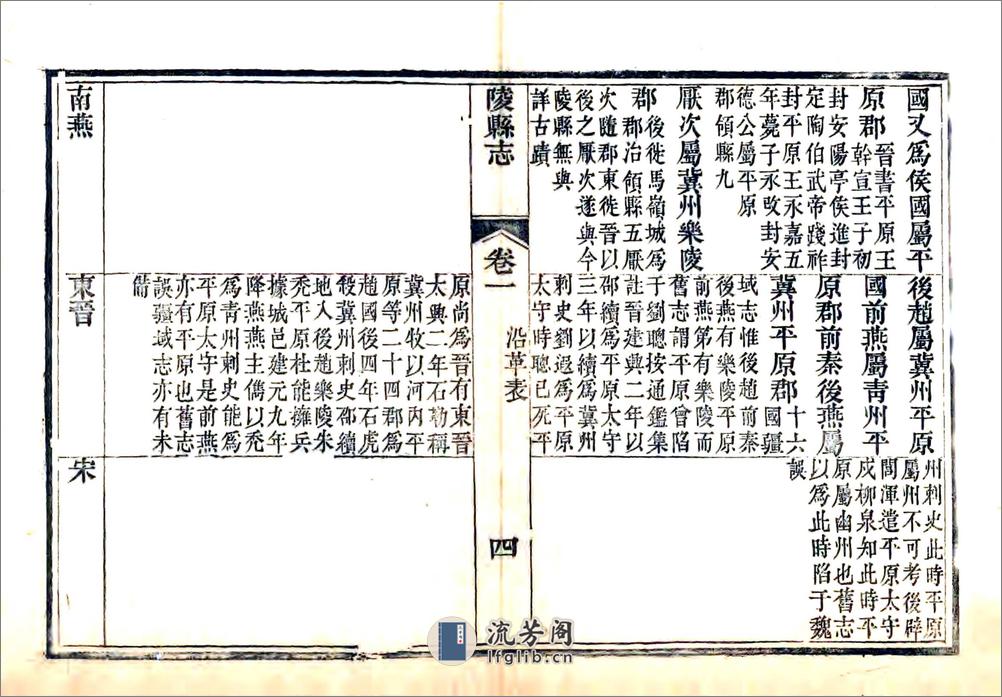 國又爲侯國屬平
原郡晉書平原王
幹宣王子初
封安陽亭侯進封
定陶伯武帝踐祚
封平原王永嘉五
年薨子永改封安
德公屬平原
郡領縣九
厭次屬冀州樂陵
郡後徙馬嶺城爲
郡治領縣五厭
次隨郡東徙晉以
後之厭次遂與今
陵縣無與
詳古蹟
後趙屬冀州平原
國前燕屬靑州平
原郡前秦後燕屬
冀州平原郡十六
國疆
域志惟後趙前秦
後燕有樂陵平原
前燕第有樂陵而
舊志謂平原曾陷
于劉聰按通鑑集
註晉建興二年以
邵續爲平原太守
三年以續爲冀州
刺史劉遐爲平原
太守時聰已死平
州刺史此時平原
屬州不可考後辟
閭渾遣平原太守
戍柳泉知此時平
原屬幽州也舊志
以爲此時陷于魏
誤
陵縣志
卷一
沿革表
四
原尚爲晉有東晉
太興二年石勒稱
冀州牧以河內平
原等二十四郡爲
趙國後四年石虎
殺冀州刺史邵續
地入後趙樂陵朱
禿平原杜能擁兵
據城邑建元九年
降燕燕主儁以禿
爲靑州刺史能爲
平原太守是前燕
亦有平原也舊志
誤疆域志亦有未
備
南燕
東晉
宋
流芳阁
lfglib.cn